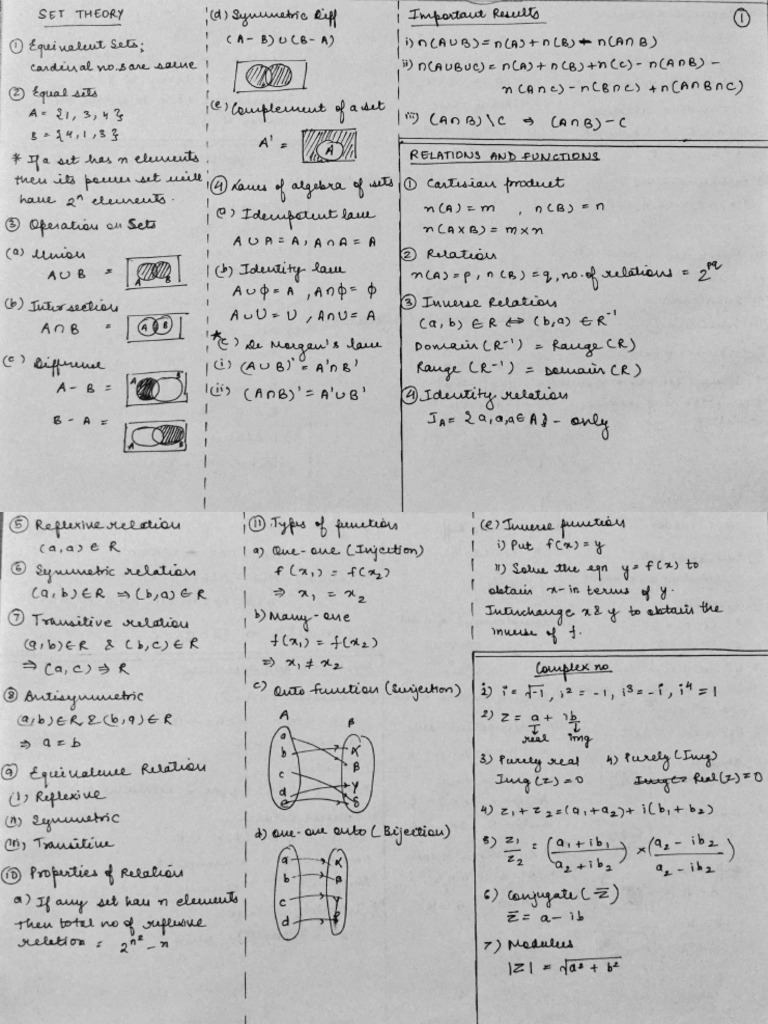 SET THEORY
① Equivalent Sets;
cardinal no.s are same
② Equal sets
A = {1, 3, 4}
B = {4, 1, 3}
* If a set has n elements
then its power set will
have 2ⁿ elements.
③ Operation on Sets
(a) Union
A∪B =
A B
(b) Intersection
A∩B =
A B
(c) Difference
A - B =
A B
B - A =
A B
(d) Symmetric Diff
(A-B)∪(B-A)
(e) Complement of a set
A' =
A
④ Laws of algebra of sets
(a) Idempotent law
A∪A = A, A∩A = A
(b) Identity law
A∪ϕ = A, A∩ϕ = ϕ
A∪U = U, A∩U = A
*(c) De Morgan's law
(i) (A∪B)' = A'∩B'
(ii) (A∩B)' = A'∪B'
Important Results
①
i) n(A∪B) = n(A) + n(B) - n(A∩B)
ii) n(A∪B∪C) = n(A) + n(B) + n(C) - n(A∩B) -
n(A∩C) - n(B∩C) + n(A∩B∩C)
iii) (A∩B)\C ⇒ (A∩B)-C
RELATIONS AND FUNCTIONS
① Cartesian product
n(A) = m , n(B) = n
n(A×B) = m×n
② Relation
n(A) = p, n(B) = q, no. of relations = 2^pq
③ Inverse Relation
(a,b) ∈ R ⇔ (b,a) ∈ R⁻¹
Domain(R⁻¹) = Range(R)
Range(R⁻¹) = Domain(R)
④ Identity relation
I_A = {a,a,a∈A} - only
⑤ Reflexive relation
(a,a) ∈ R
⑥ Symmetric relation
(a,b) ∈ R ⇒ (b,a) ∈ R
⑦ Transitive relation
(a,b) ∈ R & (b,c) ∈ R
⇒ (a,c) ⇒ R
⑧ Antisymmetric
(a,b) ∈ R & (b,a) ∈ R
⇒ a = b
⑨ Equivalence Relation
(i) Reflexive
(ii) Symmetric
(iii) Transitive
⑩ Properties of Relation
a) If any set has n elements
then total no of reflexive
relation = 2^n²-n
⑪ Types of functions
a) One-one (Injection)
f(x₁) = f(x₂)
⇒ x₁ = x₂
b) Many-one
f(x₁) = f(x₂)
⇒ x₁ ≠ x₂
c) Onto function (Surjection)
A B
a
b α
c β
d γ
e δ
d) One-one onto (Bijection)
a α
b β
c γ
d δ
(e) Inverse function
i) Put f(x) = y
ii) Solve the eqn y = f(x) to
obtain x in terms of y.
Interchange x & y to obtain the
inverse of f.
Complex no
1) i = √-1, i² = -1, i³ = -i, i⁴ = 1
2) z = a + ib
real img
3) Purely real 4) Purely (Img)
Img(z) = 0 Real(z) = 0
4) z₁ + z₂ = (a₁ + a₂) + i(b₁ + b₂)
5) z₁/z₂ = (a₁ + ib₁/a₂ + ib₂) × (a₂ - ib₂/a₂ - ib₂)
6) Conjugate (z̅)
z̅ = a - ib
7) Modulus
|Z| = √a² + b²